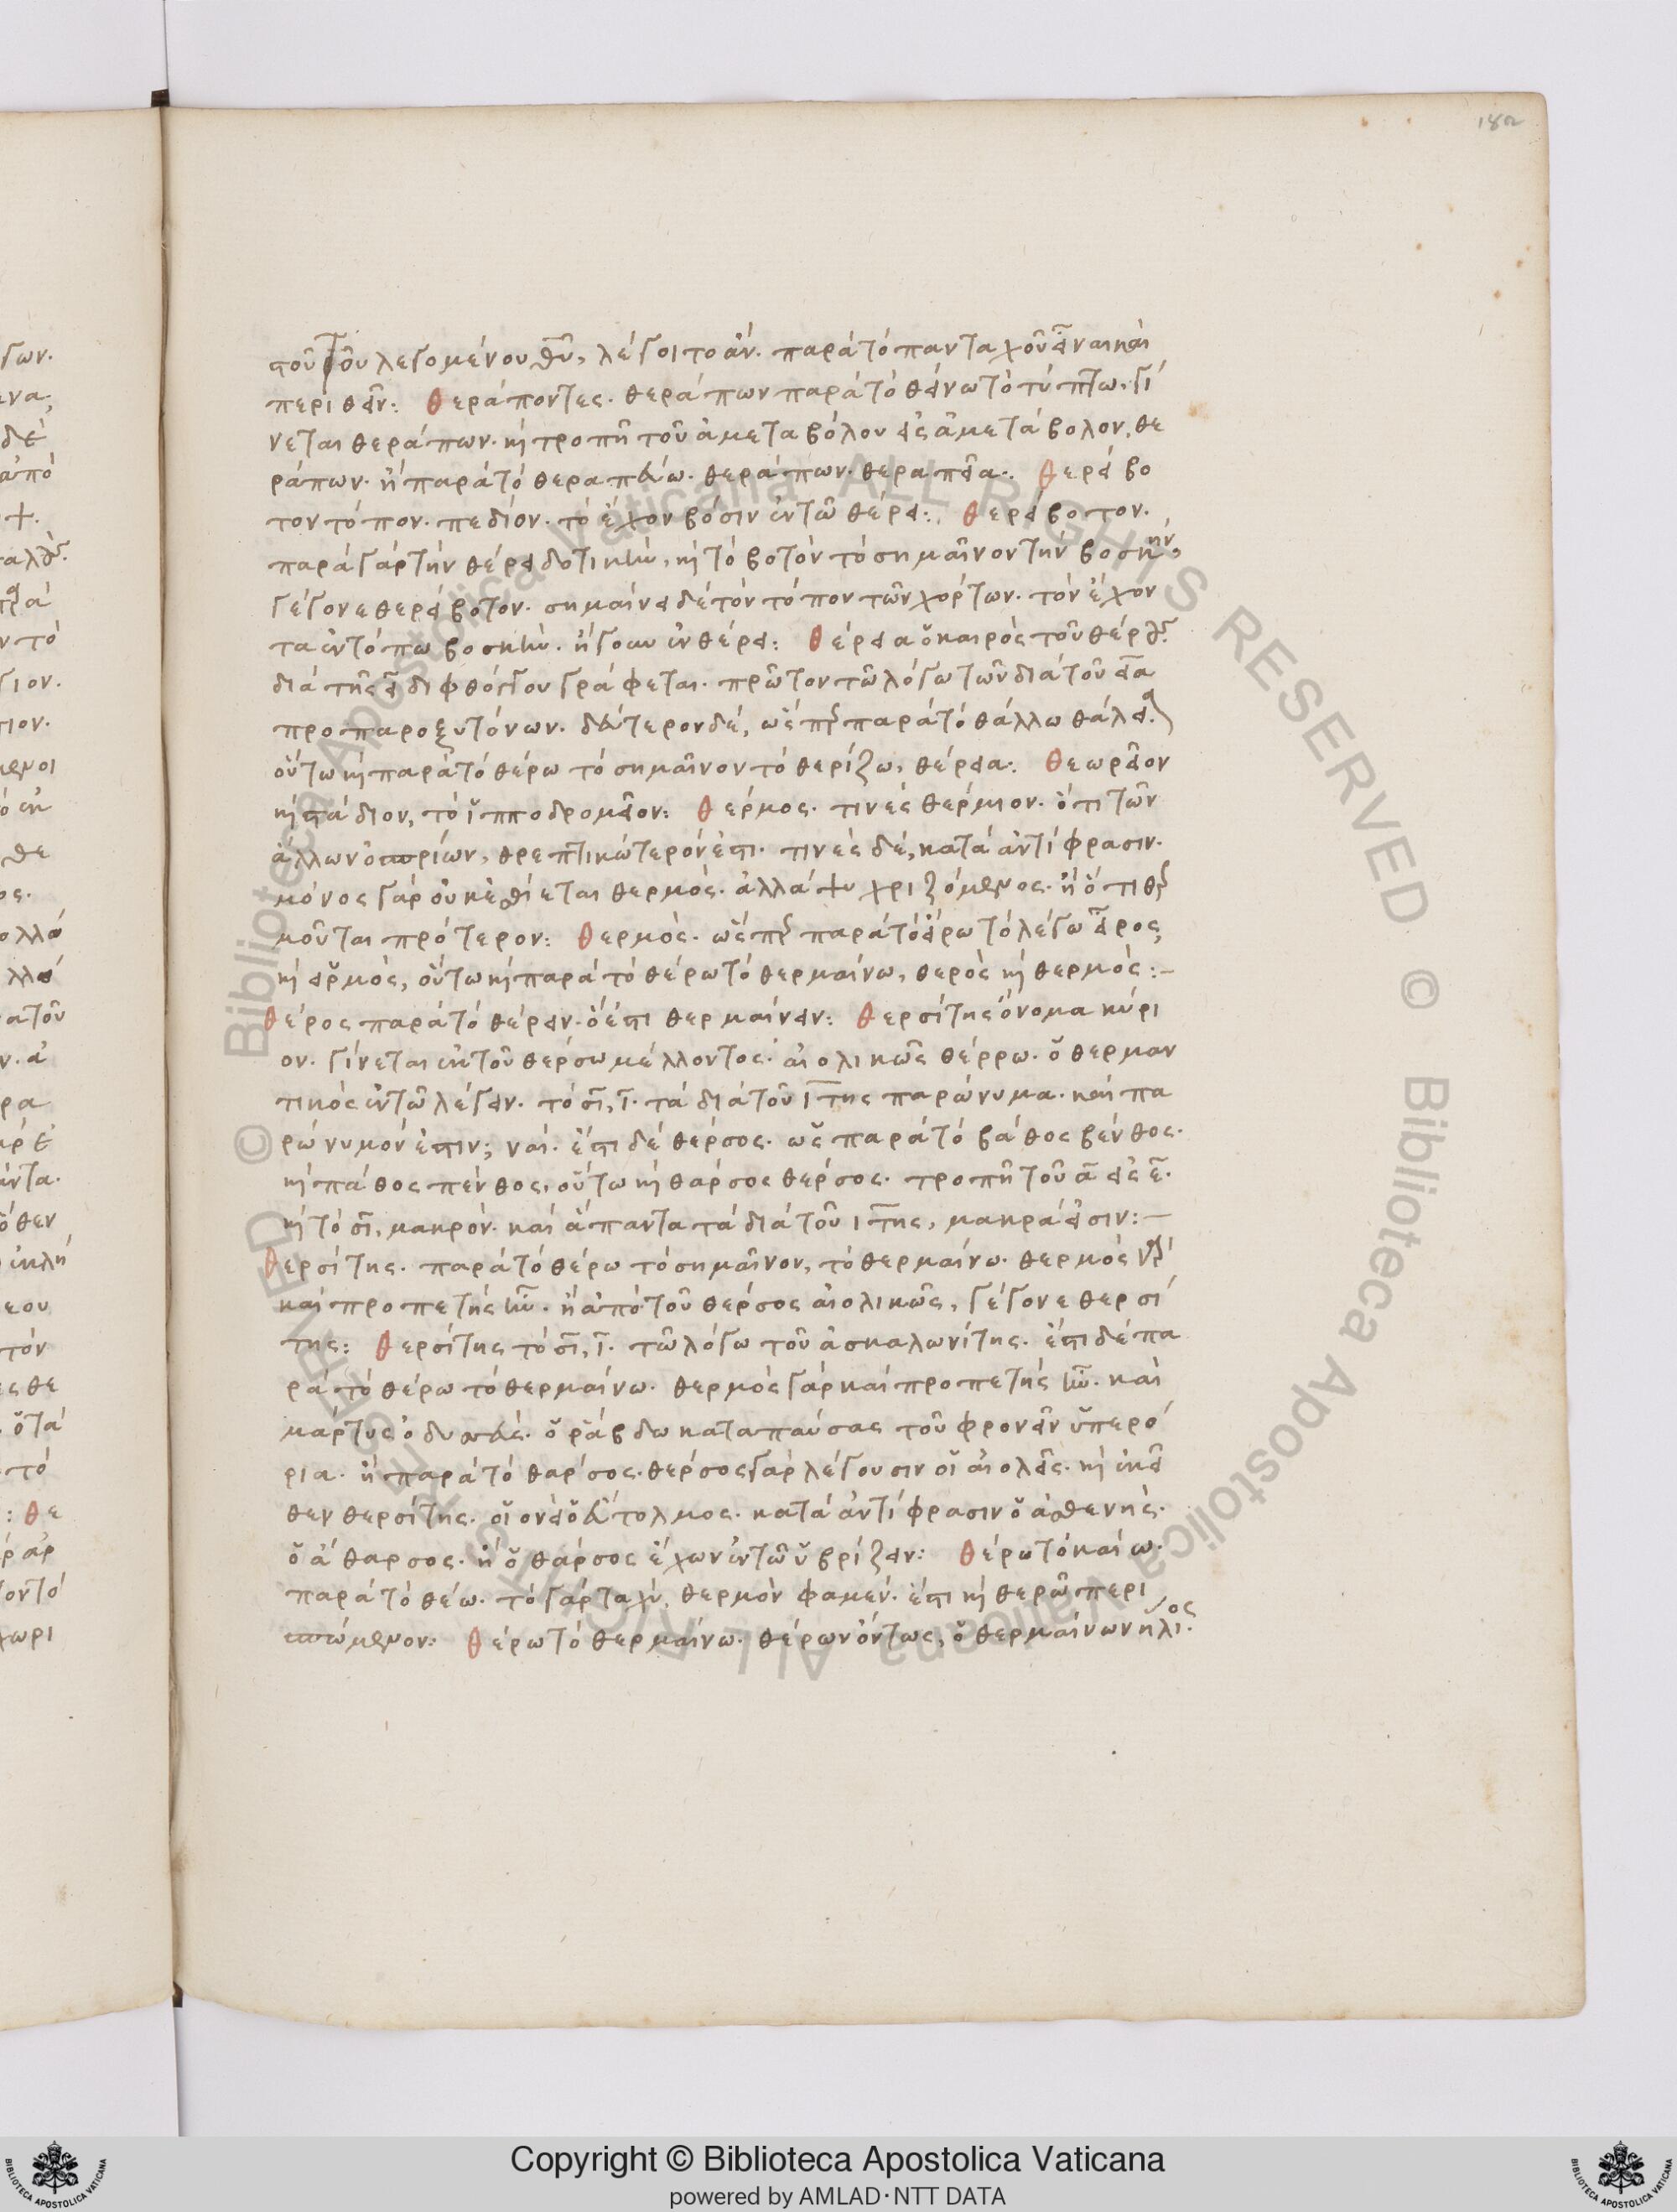 182
του λεγομένου θῦ, λέγοιτο ἄν. παρὰ τὸ πανταχοῦ εἶναι καὶ
περιθεῖν: Θεράποντες. θεράπων παρὰ τὸ θείνω τὸ τύπτω. γί
νεται θεράπων. κὶ τροπῆ τοῦ ἀμεταβόλου εἰς ἀμετάβολον, θε
ράπων. ἢ παρὰ τὸ θεραπεύω. θεράπων. θεραπεία: Θερείβο
τον τόπον. πεδίον. τὸ ἔχον βόσιν ἐν τῶ θέρει: Θερείβοτον.
παρὰ γὰρ τὴν θέρει δοτικὴν, κὶ τὸ βοτὸν τὸ σημαῖνον τὴν βοσκήν,
γέγονε θερείβοτον. σημαίνει δὲ τὸν τόπον τῶν χόρτων. τὸν ἔχον
τα ἐν τόπω βοσκὴν. ἤγουν ἐν θέρει: Θέρεια ὁ καιρὸς τοῦ θέρους
διὰ τῆς ει διφθόγγου γράφεται. πρῶτον τῶ λόγω τῶν διὰ τοῦ εια
προπαροξυτόνων. δεύτερον δὲ, ὥσπερ παρὰ τὸ θάλλω θάλεια
οὕτω κὶ παρὰ τὸ θέρω τὸ σημαῖνον τὸ θερίζω, θέρεια: Θεωρεῖον
κὶ στάδιον, τὸ ἱπποδρομεῖον: Θέρμος. τινὲς θέρμιον. ὅτι τῶν
ἄλλων ὀσπρίων, θρεπτικώτερόν ἐστι. τινὲς δὲ, κατὰ ἀντίφρασιν.
μόνος γὰρ οὐκ ἐσθίεται θερμὸς. ἀλλὰ ψυχριζόμενος. ἢ ὅτι θερ
μοῦται πρότερον: Θερμὸς. ὥσπερ παρὰ τὸ εἴρω τὸ λέγω εἶρος,
κὶ εἱρμὸς, οὕτω κὶ παρὰ τὸ θέρω τὸ θερμαίνω, θερὸς κὶ θερμὸς:–
Θέρος παρὰ τὸ θέρειν. ὅ ἐστι θερμαίνειν: Θερσίτης ὄνομα κύρι
ον. γίνεται ἐκ τοῦ θέρσω μέλλοντος. αἰολικῶς θέρρω. ὁ θερμαν
τικὸς ἐν τῶ λέγειν. τὸ σι, ι. τὰ διὰ τοῦ ιτης παρώνυμα. καὶ πα
ρώνυμόν ἐστιν; ναί. ἔστι δὲ θέρσος. ὡς παρὰ τὸ βάθος βένθος.
κὶ πάθος πένθος, οὕτω κὶ θάρσος θέρσος. τροπῆ τοῦ α εἰς ε.
κὶ τὸ σι, μακρὸν. καὶ ἅπαντα τὰ διὰ τοῦ ιτης, μακρά εἰσιν:–
Θερσίτης. παρὰ τὸ θέρω τὸ σημαῖνον, τὸ θερμαίνω. θερμὸς γὰρ
καὶ προπετὴς ἦν. ἢ ἀπὸ τοῦ θέρσος αἰολικῶς, γέγονε θερσί
της: Θερσίτης τὸ σι, ι. τῶ λόγω τοῦ ἀσκαλωνίτης. ἔστι δὲ πα
ρὰ τὸ θέρω τὸ θερμαίνω. θερμὸς γὰρ καὶ προπετὴς ἦν. καὶ
μάρτυς ὀδυσεύς. ὁ ῥάβδω καταπαύσας τοῦ φρονεῖν ὑπερό
ρια. ἢ παρὰ τὸ θάρσος. θέρσος γὰρ λέγουσιν οἱ αἰολεῖς. κὶ ἐκεῖ
θεν θερσίτης. οἱονεὶ ὁ εὔτολμος. κατὰ ἀντίφρασιν ὁ ἀσθενὴς.
ὁ ἄθαρσος. ἢ ὁ θάρσος ἔχων ἐν τῶ ὑβρίζειν: Θέρω τὸ καίω.
παρὰ τὸ θέω. τὸ γὰρ ταχὺ, θερμὸν φαμέν. ἔστι κὶ θερῶ περι
σπώμενον: Θέρω τὸ θερμαίνω. θέρων ὄντως, ὁ θερμαίνων ἥλιος.
© Biblioteca Apostolica Vaticana ALL RIGHTS RESERVED
Copyright © Biblioteca Apostolica Vaticana
powered by AMLAD·NTT DATA